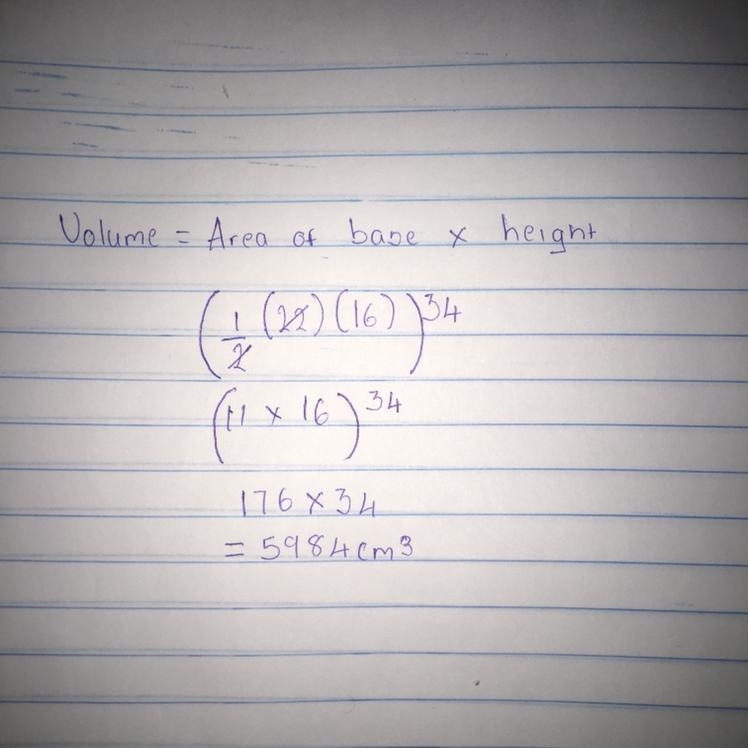 Volume = Area of base x height
(1/2 (22)(16))34
(11 x 16)34
176 x 34
= 5984cm3